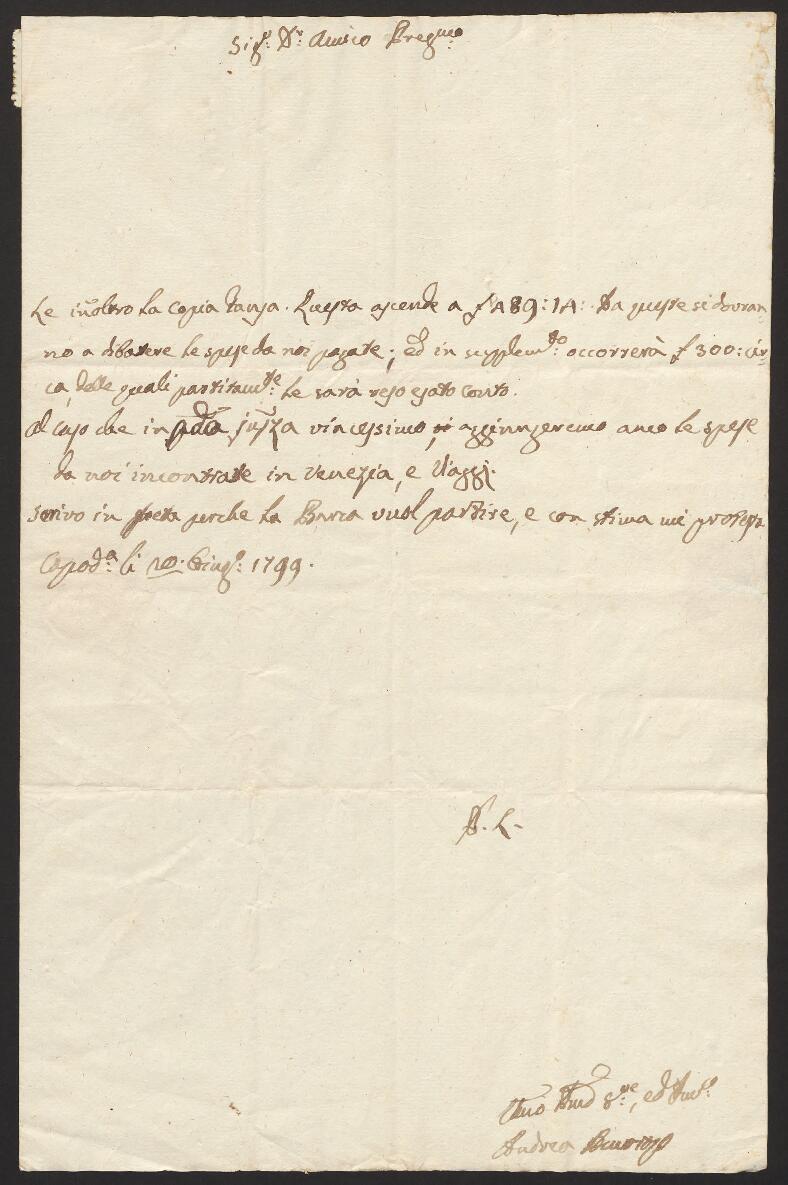 Sigr: Dr Amico Pregmo:
Le inoltro la copia tansa. Questa ascende a f 489:14: Da queste si dovran-
no a dibatere le spese da noi pagate; ed in supplemto: occorrerà f 300: cir-
ca, delle quali partitamte: le sarà reso esato conto.
Al caso che in pma istza vincessimo, aggiungeremo anco le spese
da noi incontrate in Venezia, e Viaggj.
Scrivo in freta perche la Barca vuol partire, e con stima mi protesto
Capoda: li Giugo: 1799.
P. L.
Umo ed Amo:
Andrea